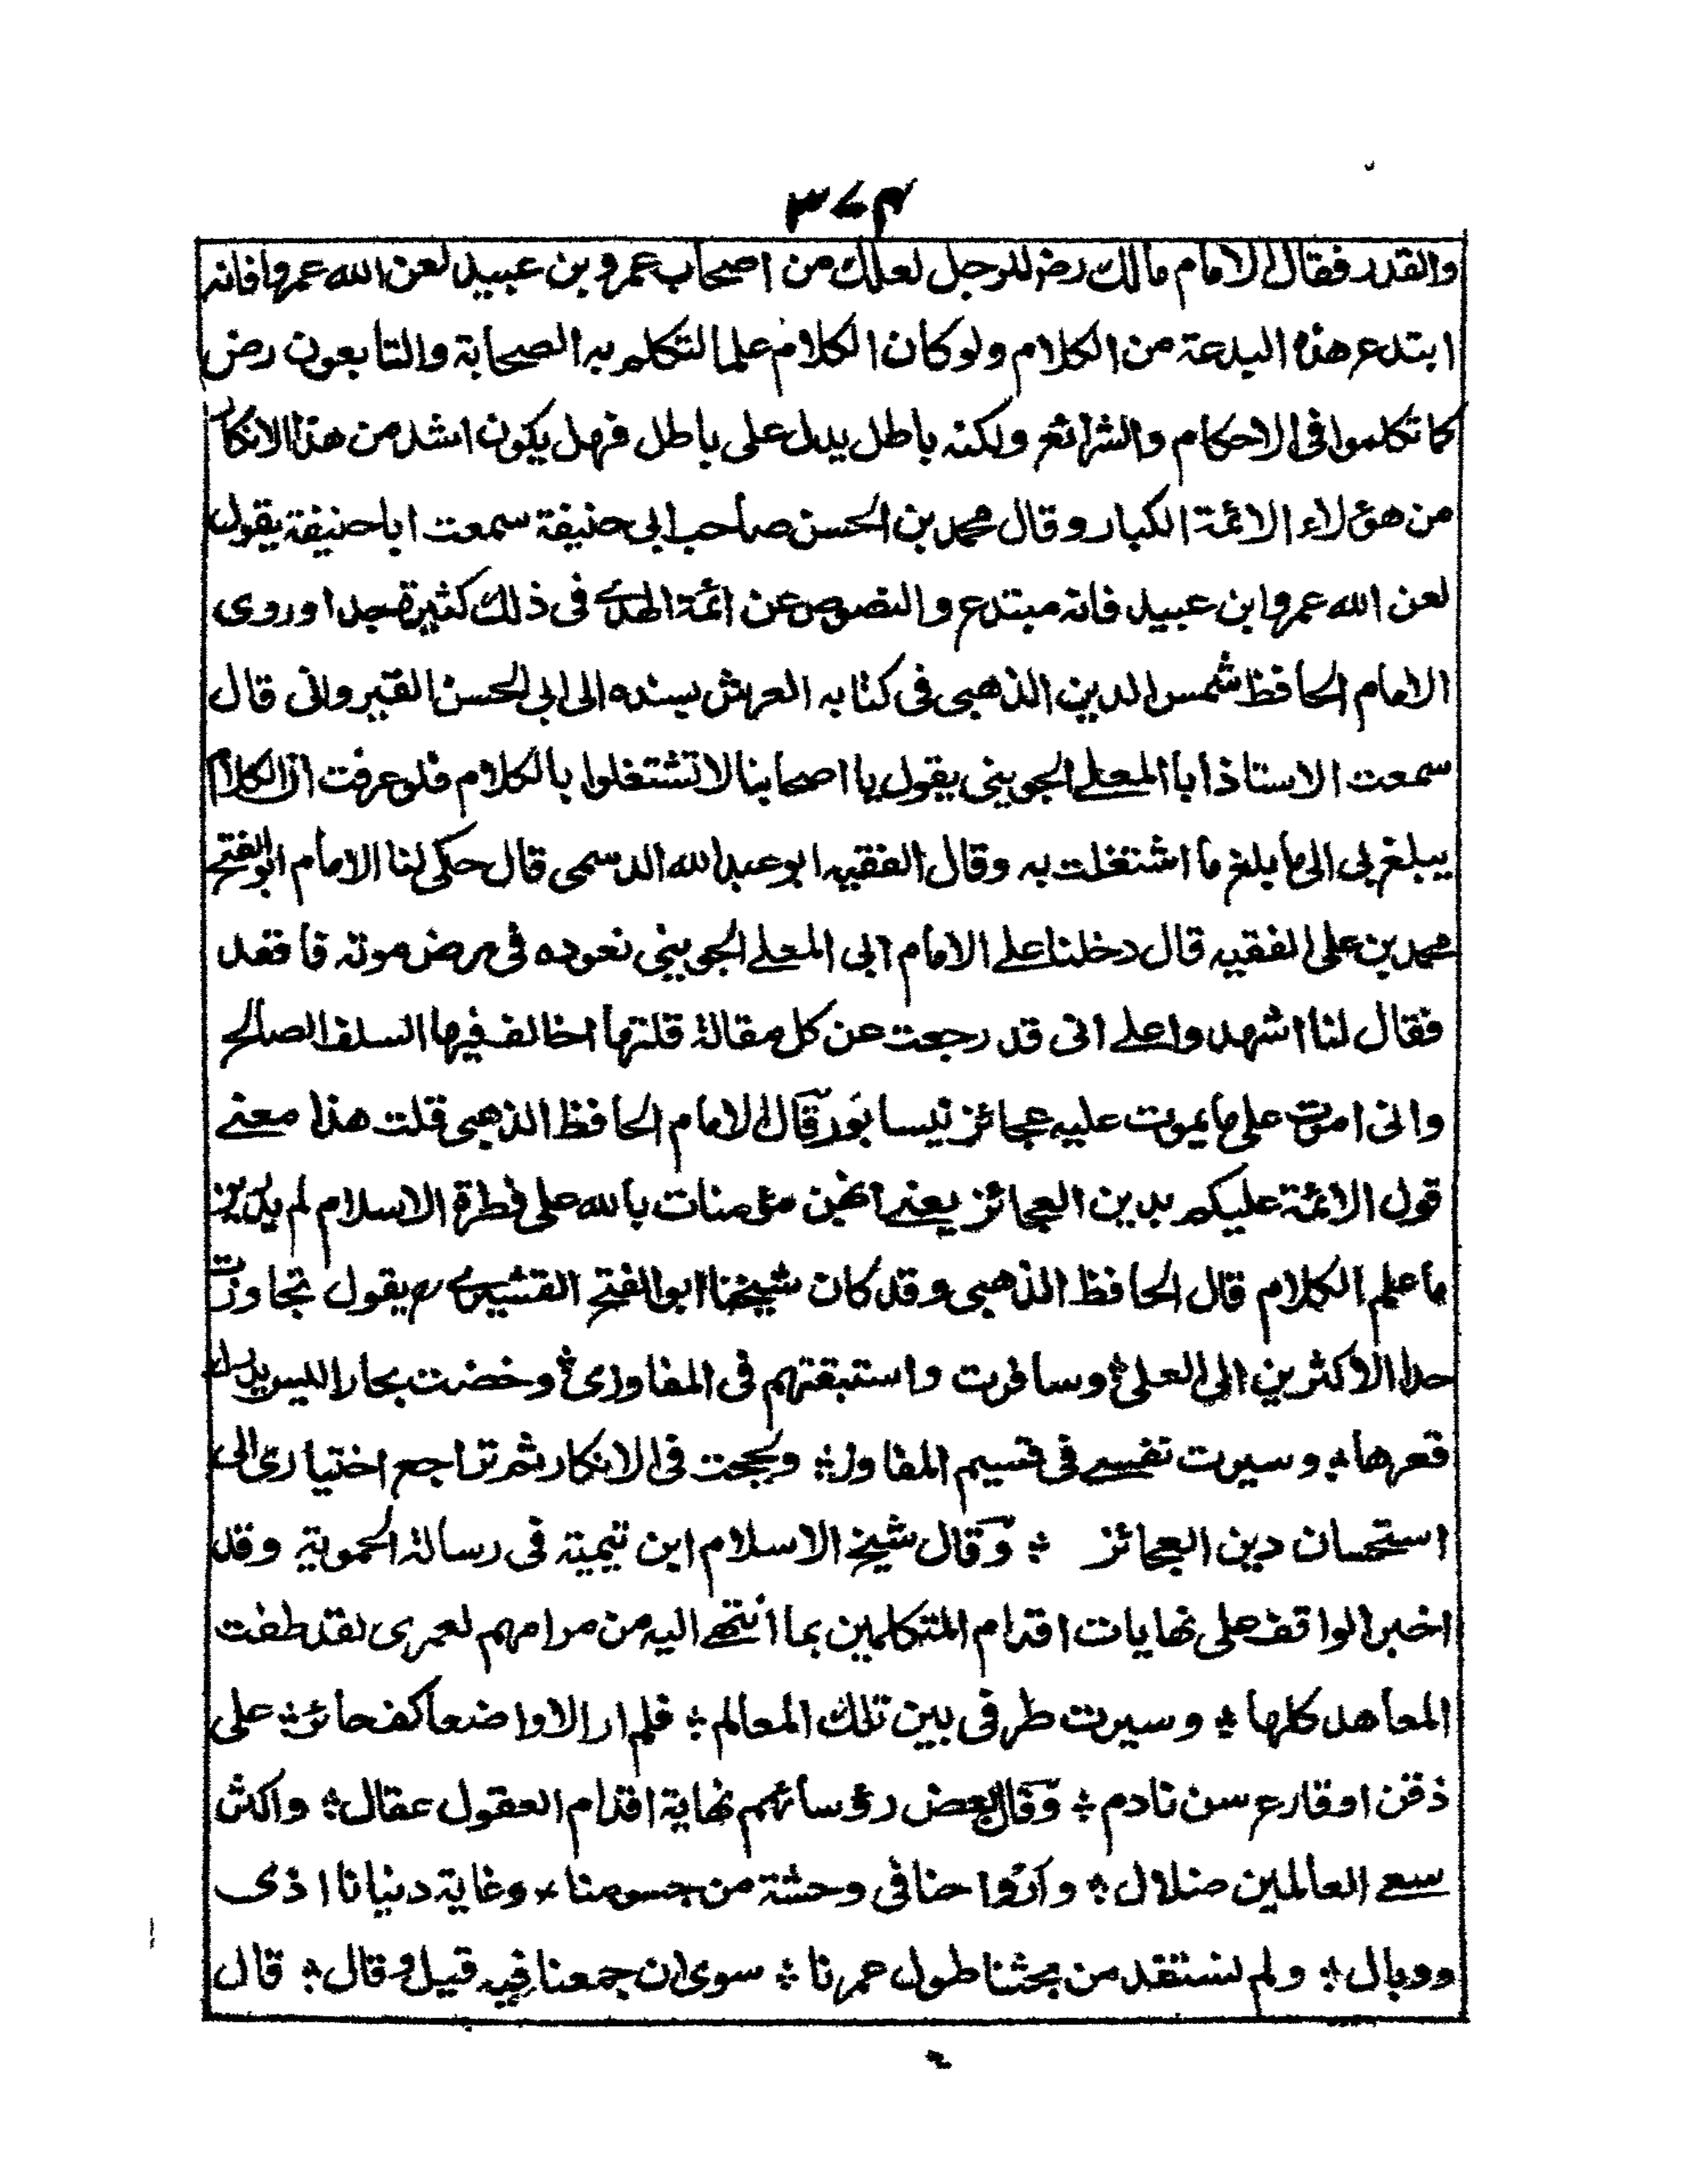 ٣٧٤
والقدر فقال الامام مالك رض للرجل لعلك من اصحاب عمرو بن عبيد لعن الله عمروا فانه
ابتدع هذه البدعة من الكلام ولو كان الكلام علما لتكلم به الصحابة والتابعون رض
كما تكلموا فى الاحكام والشرائع ولكنه باطل يدل على باطل فهل يكون اشد من هذا الانكار
من هؤلاء الائمة الكبار وقال محمد بن الحسن صاحب ابى حنيفة سمعت ابا حنيفة يقول
لعن الله عمروا ابن عبيد فانه مبتدع والنصوص عن ائمة الهدے فى ذلك كثيرة جدا وروى
الامام الحافظ شمس الدين الذهبى فى كتابه العرش بسنده الى ابى الحسن القيروانى قال
سمعت الاستاذ ابا المعلے الجوينى يقول يا اصحابنا لا تشتغلوا بالكلام فلو عرفت ان الكلام
يبلغ بى الى ما بلغ ما اشتغلت به وقال الفقيه ابو عبد الله الدسمى قال حكى لنا الامام ابو الفتح
محمد بن على الفقيه قال دخلنا علے الامام ابى المعلے الجوينى نعوده فى مرض موته فاقعد
فقال لنا اشهدوا علے انى قد رجعت عن كل مقالة قلتها اخالف فيها السلف الصالح
وانى اموت على ما يموت عليه عجائز نيسابور قال الامام الحافظ الذهبى قلت هذا معنے
قول الائمة عليكم بدين العجائز يعنے انهن مؤمنات بالله على فطرة الاسلام لم يدرين
ما علم الكلام قال الحافظ الذهبى وقد كان شيخنا ابو الفتح القشيرے رح يقول تجاوزت
حد الاكثرين الى العلى وسافرت واستبقتهم فى المفاوزى وخضت بحارا ليس يدرك
قعرها ؛ وسيرت نفسے فى قسيم المفاوز ؛ ولججت فى الانكار ثم تراجع اختيارى الى
استحسان دين العجائز ؛ وقال شيخ الاسلام ابن تيمية فى رسالة الحموية وقد
اخبر الواقف على نهايات اقدام المتكلمين بما انتهے اليه من مرامهم لعمرى لقد طفت
المعاهد كلها ؛ وسيرت طرفى بين تلك المعالم ؛ فلم ار الا واضعا كف حائر ؛ على
ذقن او قارع سن نادم ؛ وقال بعض رؤسائهم نهاية اقدام العقول عقال ؛ واكثر
سعے العالمين ضلال ؛ وارواحنا فى وحشة من جسومنا ؛ وغاية دنيانا اذى
ووبال ؛ ولم نستفد من بحثنا طول عمرنا ؛ سوى ان جمعنا فيه قيل وقال ؛ قال